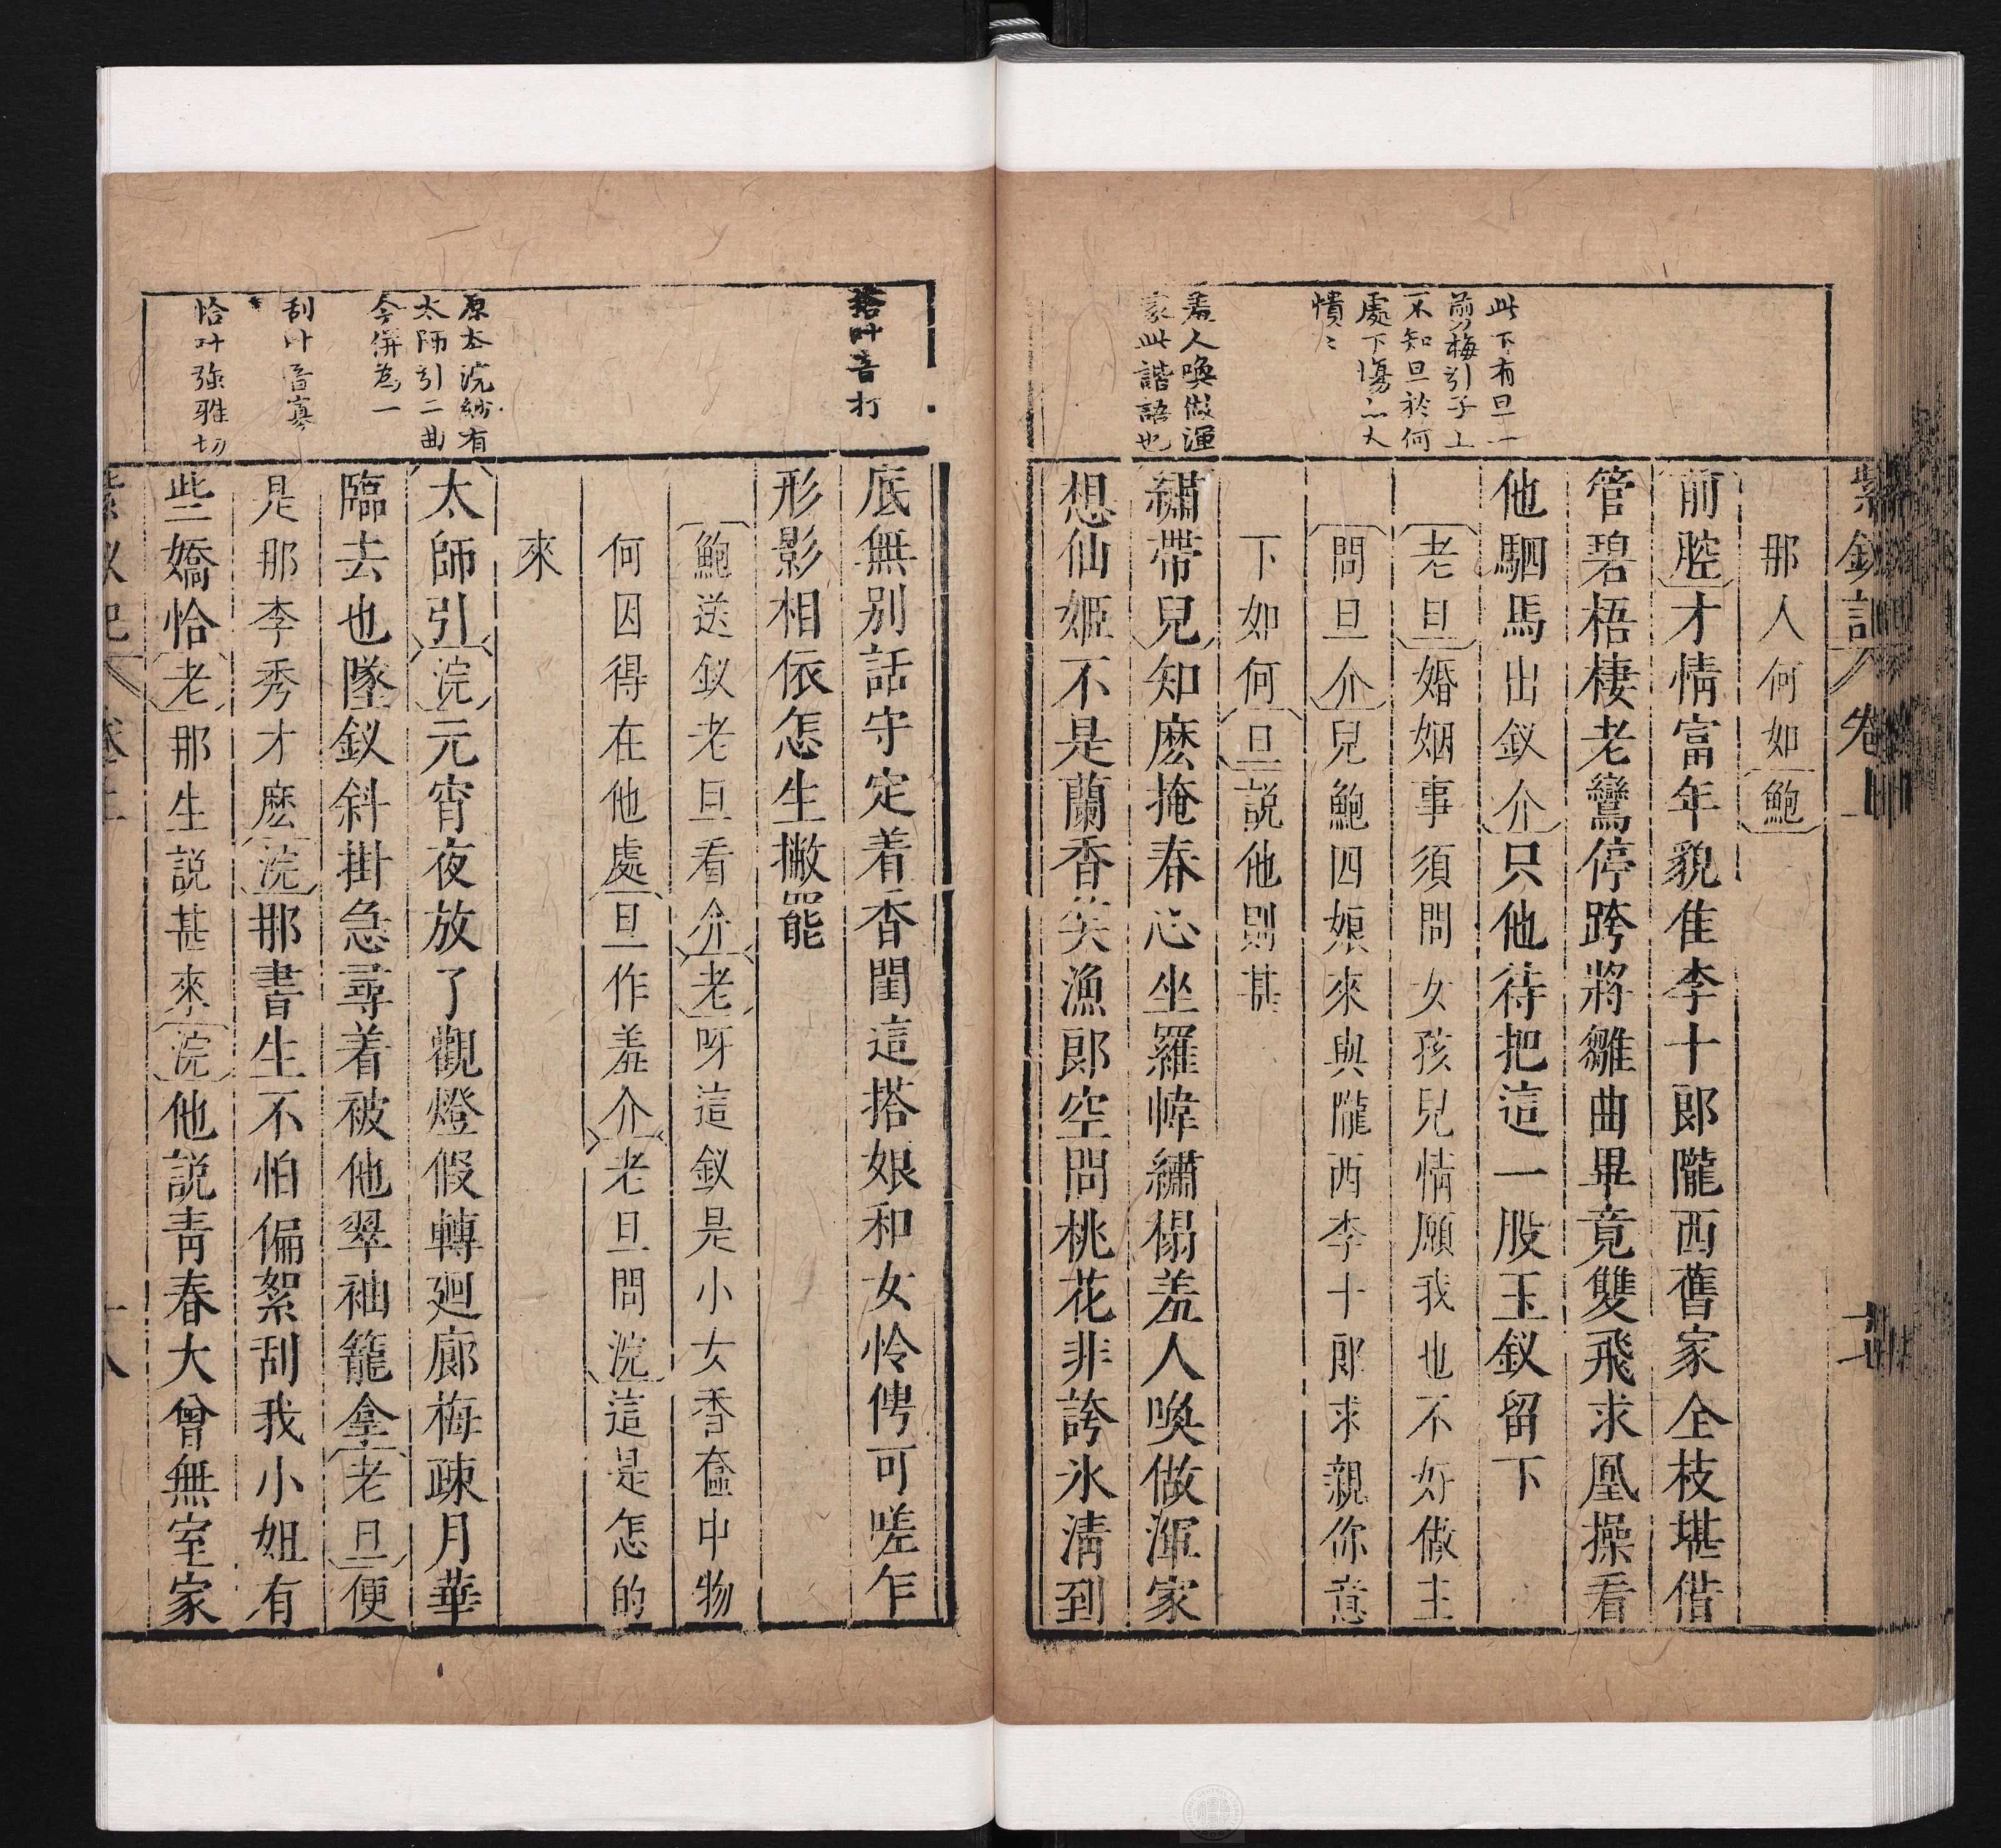 紫釵記 卷上
此下有旦一
剪梅引子上
不知旦於何
處下傷人
憒〻
羞人喚做渾
家此諧語也
那人何如鮑
前腔才情富年貌佳李十郎隴西舊家全枝堪偕
管碧梧棲老鸞停跨將雛曲畢竟雙飛求凰操看
他駟馬出釵介只他待把這一股玉釵留下
老旦婚姻事須問女孩兒情願我也不好做主
問旦介兒鮑四娘來與隴西李十郎求親你意
下如何旦說他別甚
繡帶兒知麽掩春心坐羅幃繡榻羞人喚做渾家
想仙姬不是蘭香笑漁郎空問桃花非誇氷清到
搭叶音打
原本浣紗有
太師引二曲
今併為一
刮叶音寡
恰叶強雅切
底無別話守定着香閨這搭娘和女怜俜可嗟乍
形影相依怎生撇罷
鮑送釵老旦看介老呀這釵是小女香奩中物
何因得在他處旦作羞介老旦問浣這是怎的
來
太師引浣元宵夜放了觀燈假轉廻廊梅疎月華
臨去也墜釵斜掛急尋着被他翠袖籠拿老旦便
是那李秀才麽浣那書生不怕偏絮刮我小姐有
些嬌恰老那生説甚來浣他説青春大曾無室家